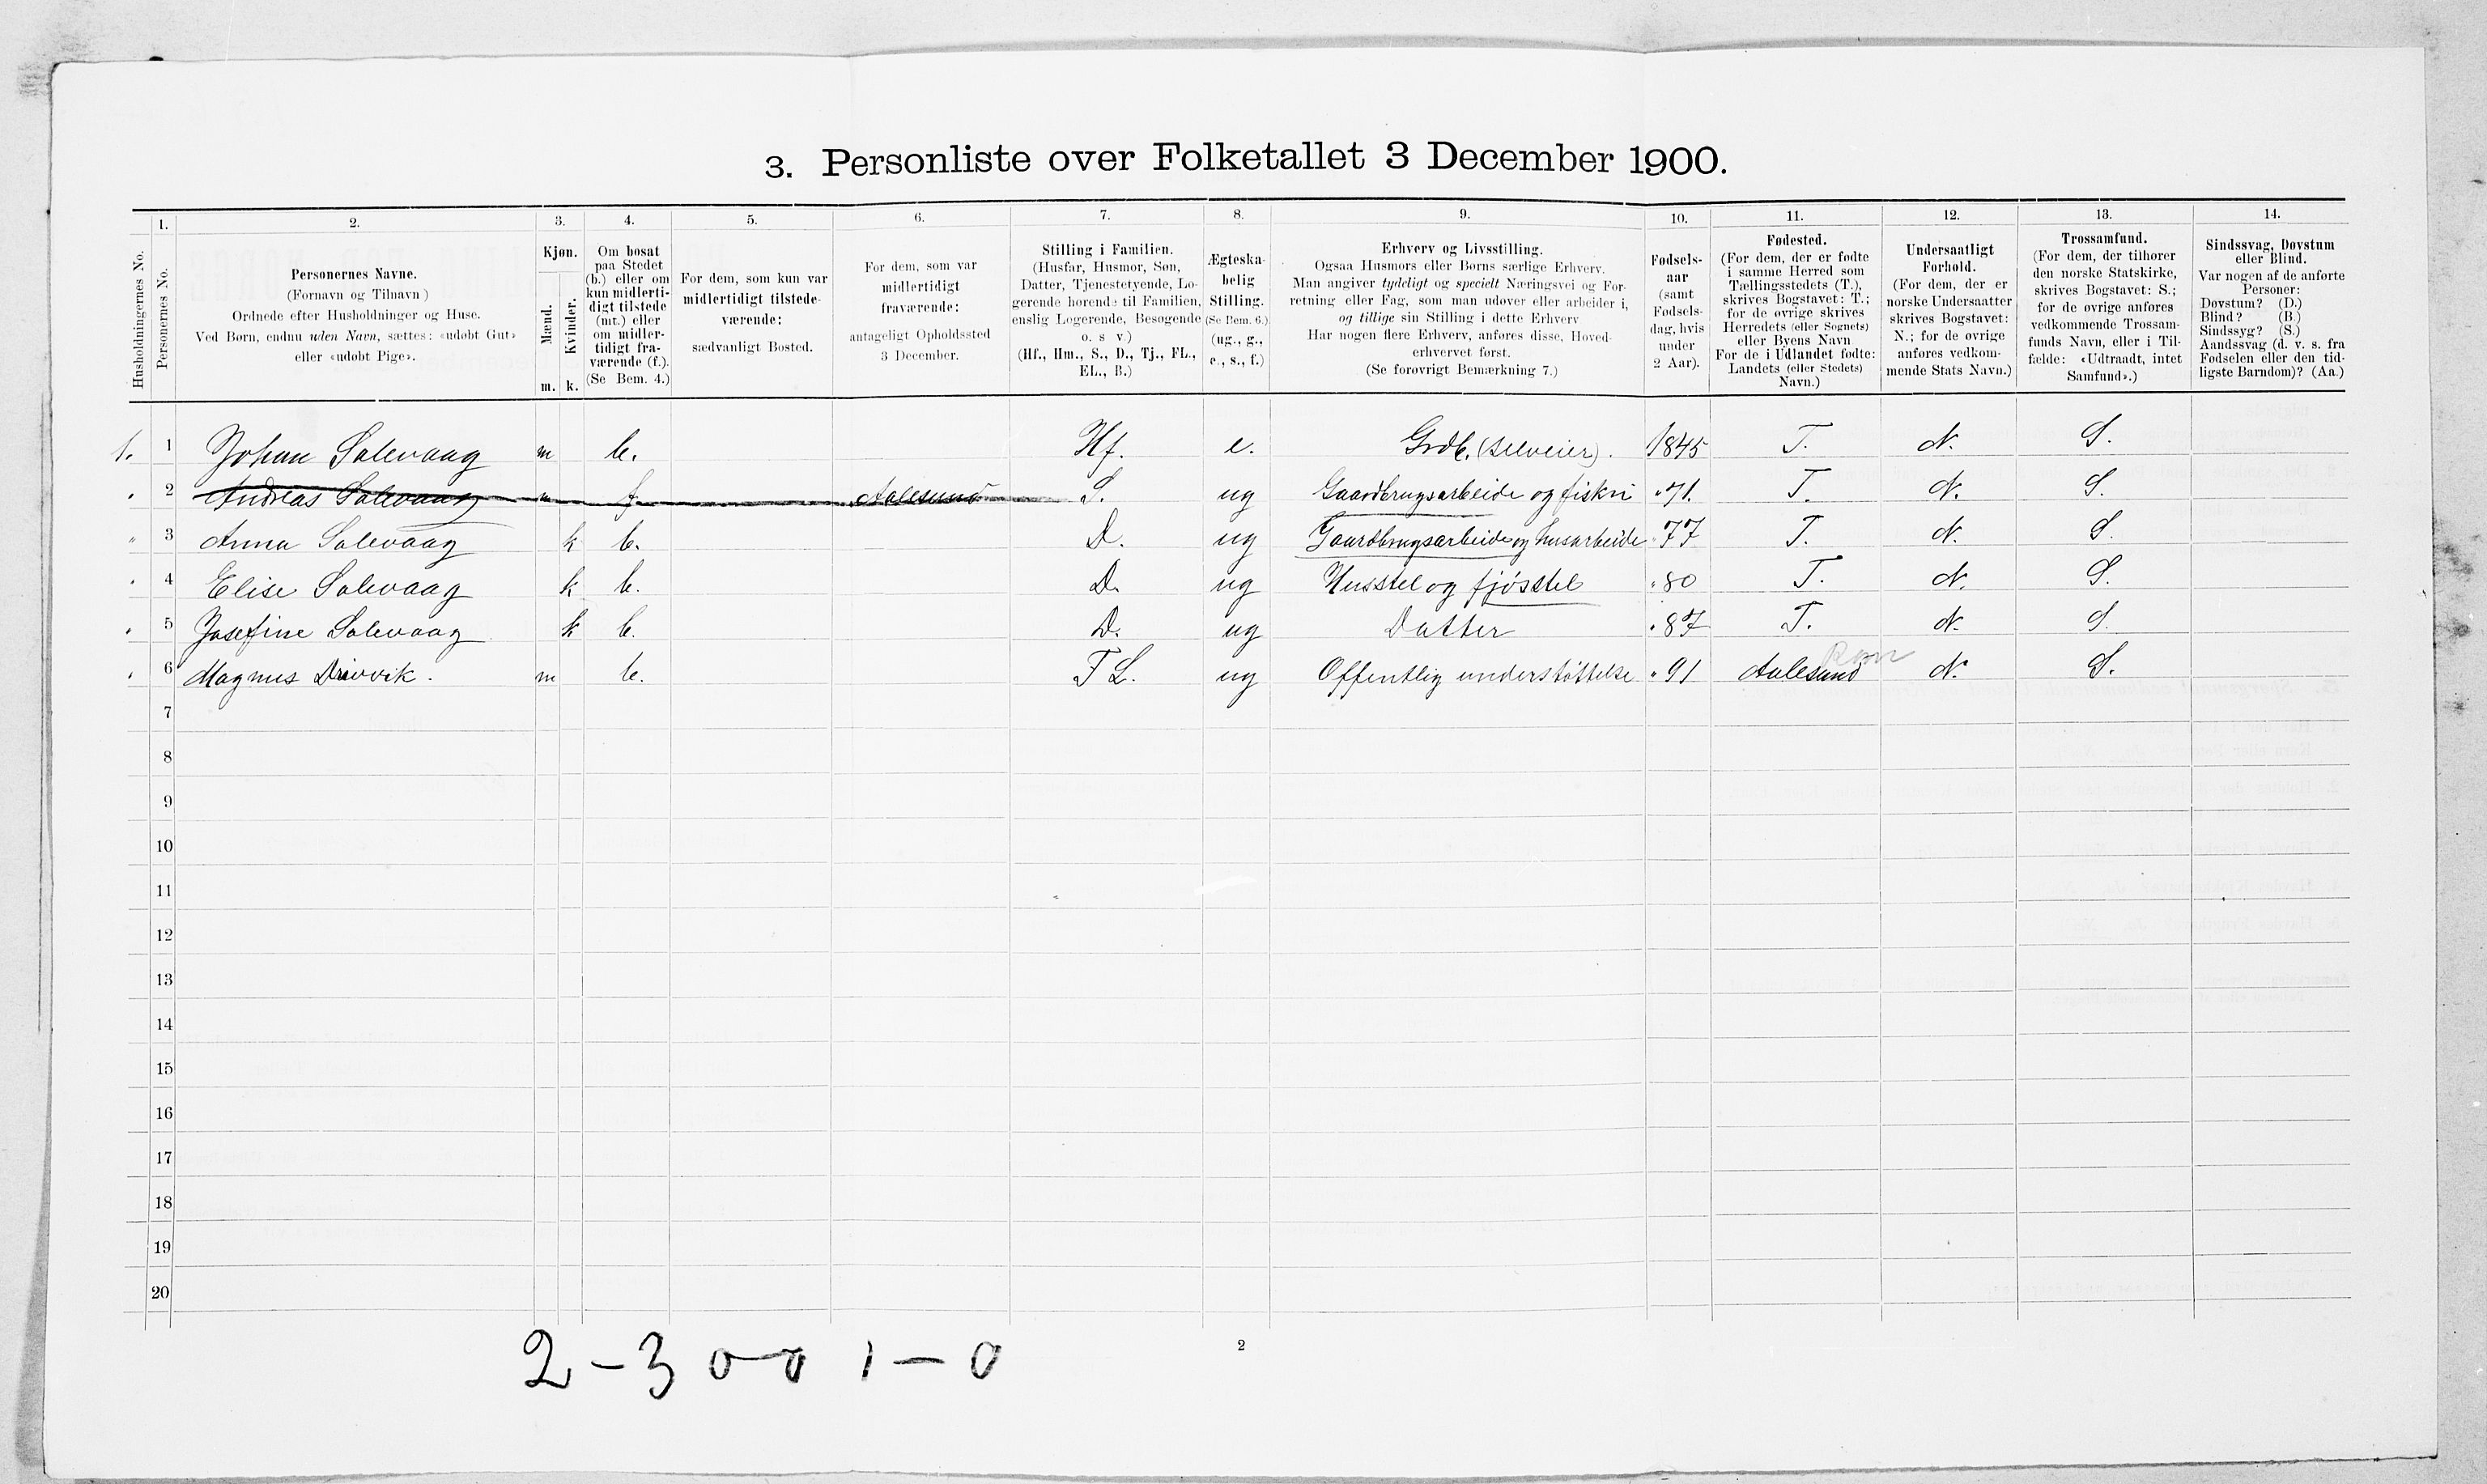 3. Personliste over Folketallet 3 December 1900.
1. 2. 3. 4. 5. 6. 7. 8. 9. 10. 11. 12. 13. 14.
Husholdningernes No.
Personernes No.
Personernes Navne.
(Fornavn og Tilnavn)
Ordnede efter Husholdninger og Huse.
Ved Børn, endnu uden Navn, sættes: «udøbt Gut»
eller «udøbt Pige».
Kjøn.
Mænd.
Kvinder.
m. k.
Om bosat
paa Stedet
(b.) eller om
kun midlerti-
digt tilstede
(mt.) eller
om midler-
tidigt fra-
værende (f.).
(Se Bem. 4.)
For dem, som kun var
midlertidigt tilstede-
værende:
sædvanligt Bosted.
For dem, som var
midlertidigt
fraværende:
antageligt Opholdssted
3 December.
Stilling i Familien.
(Husfar, Husmor, Søn,
Datter, Tjenestetyende, Lo-
gerende hørende til Familien,
enslig Logerende, Besøgende
o. s v.)
(Hf., Hm., S., D., Tj., FL.,
EL., B.)
Ægteska-
belig
Stilling.
(Se Bem. 6.)
(ug., g.,
e., s., f.)
Erhverv og Livsstilling.
Ogsaa Husmors eller Børns særlige Erhverv.
Man angiver tydeligt og specielt Næringsvei og For-
retning eller Fag, som man udøver eller arbeider i,
og tillige sin Stilling i dette Erhverv
Har nogen flere Erhverv, anføres disse, Hoved-
erhvervet først.
(Se forøvrigt Bemærkning 7.)
Fødsels-
aar
(samt
Fødsels-
dag, hvis
under
2 Aar).
Fødested.
(For dem, der er fødte
i samme Herred som
Tællingsstedets (T.),
skrives Bogstavet: T.;
for de øvrige skrives
Herredets (eller Sognets)
eller Byens Navn
For de i Udlandet fødte:
Landets (eller Stedets)
Navn.)
Undersaatligt
Forhold.
(For dem, der er
norske Undersaatter
skrives Bogstavet:
N.; for de øvrige
anføres vedkom-
mende Stats Navn.)
Trossamfund.
(For dem, der tilhører
den norske Statskirke,
skrives Bogstavet: S.;
for de øvrige anføres
vedkommende Trossam-
funds Navn, eller i Til-
fælde: «Udtraadt, intet
Samfund».)
Sindssvag, Døvstum
eller Blind.
Var nogen af de anførte
Personer:
Døvstum? (D.)
Blind? (B.)
Sindssyg? (S.)
Aandssvag (d. v. s. fra
Fødselen eller den tid-
ligste Barndom)? (Aa.)
1. 1 Johan Salevaag m b. Hf. e. Grdb. (selveier). 1845 T. N. S.
" 2 Andreas Salevaag m f. Aalesund S. ug Gaardbrugsarbeide og fiskri " 71. T. N. S.
" 3 Anna Salevaag k b. D. ug Gaardbrugsarbeide og husarbeide " 77 T. N. S.
" 4 Elise Salevaag k b. D. ug Husstel og fjøsstel " 80 T. N. S.
" 5 Josefine Salevaag k b. D. ug Datter " 87 T. N. S.
" 6 Magnus Drivvik. m b. F L. ug Offentlig understøttelse " 91 Aalesund N. S.
7
8
9
10
11
12
13
14
15
16
17
18
19
20
2 – 3 0–0 1 – 0
2